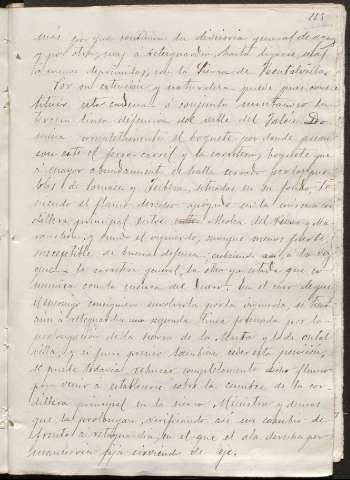 115
más por que continua la divisoria general de aguas
y por otra, mas a retaguardia, hasta dejarse, estas
menos deprimidas, en la Sierra de Montalvilla
Por su extension y naturaleza puede pues consti
tituir esta cadena o conjunto montañoso la
tercera linea defensiva del valle del Jalón. Do
mina completamente el boquete por donde pasan
con este el ferro carril y la carretera, boquete que
á mayor abundamiento se halla cerrado por los pue
blos de Somaen y Jubera, situados en su fondo. Te
niendo el flanco derecho apoyado en la misma cor
dillera principal entre Medina del
y siendo el izquierdo, aunque menos fuerte
susceptible de buena defensa; cubriendo asi, á la vez
que la carretera general, la otra ya citada que co
munica con la cuenca del Duero. En el caso de que
el enemigo consiguiera envolverla por la izquierda, se ten
drian á retaguardia una segunda linea formada por la
prolongacion de la sierra de la Mata y la de
villa, y si fuera preciso tambien ceder esta posición,
se puede todavia rehusar completamente dicho flanco
para venir a establecerse sobre la cumbre de la cor
dillera principal en la sierra Ministra y demás
que la prolongan, verificando asi un cambio de
frente a retaguardia, en el que el ala derecha per
maneceria fija sirviendo de eje.